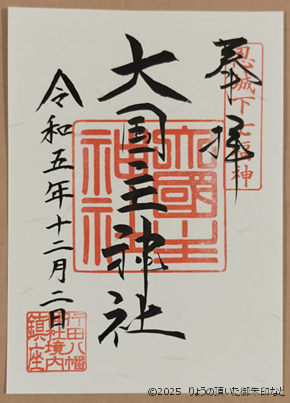 忍城下七福神
奉拝
大国主神社
大國主
神社
令和五年十二月二日
行田八幡
神社境内
鎮座
©2025 りょうの頂いた御朱印など